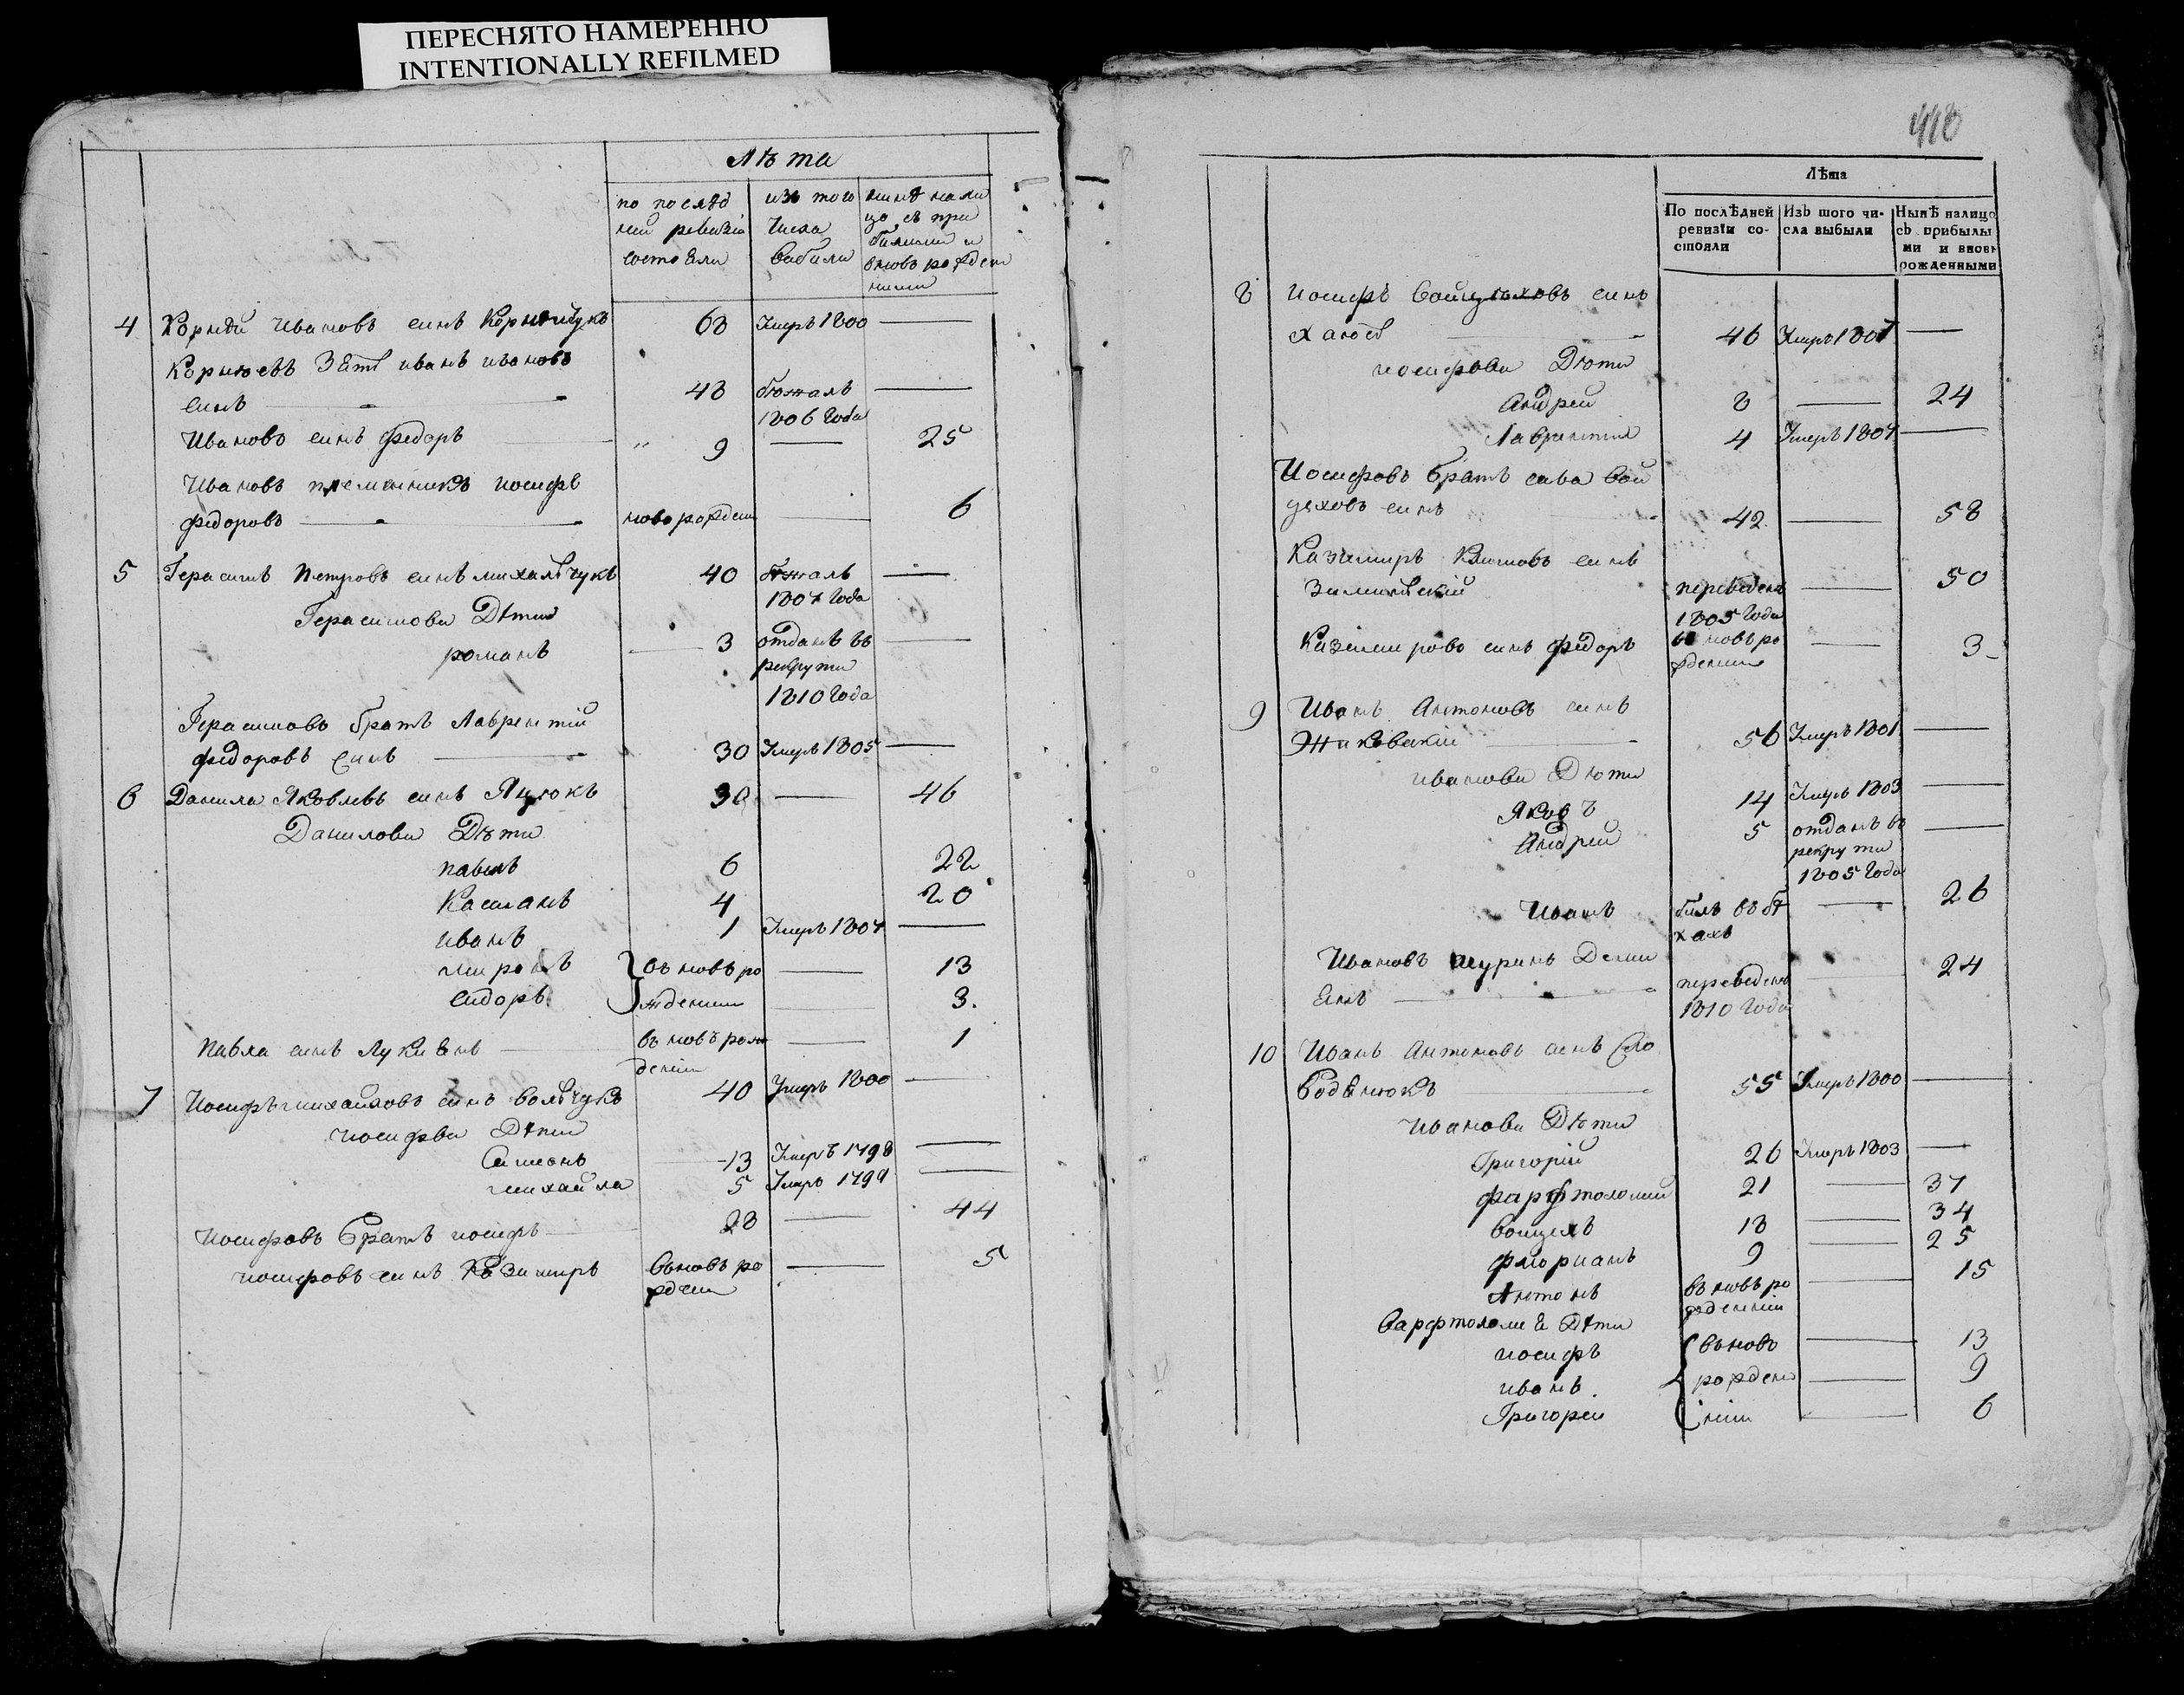 ПЕРЕСНЯТО НАМЕРЕННО
INTENTIONALLY REFILMED
Лѣта
по послѣд изъ того нинѣ нали
ней ревизіи числа цо съ при
состояли вибили билими и
вновь рожден
ними
4 Корнѣй Ивановъ синъ Корнѣйчукъ 68 Умеръ 1800 —
Корнѣевъ Зять иванъ ивановъ
синъ — 48 бѣжалъ —
1806 Года
Иваново синъ федоръ — " 9 — 25
Ивановъ племянникъ иосифъ
федоровъ — новорожден — 6
5 Герасимъ Петровъ синъ михальчукъ 40 бѣжалъ —
1807 Года
Герасимови Дѣти
романъ — 3 отданъ въ —
рекрути
1810 Года
Герасимовъ братъ Лаврентій
федоровъ синъ — 30 Умеръ 1805 —
6 Данила Яковлевъ синъ Яцюкъ 30 — 46
Данилови Дѣти
павелъ 6 22
Касианъ 4 20
иванъ 1 Умеръ 1807 —
миронъ } въ новъ ро — 13
сидоръ ждении — 3.
Павла синъ Лукиянъ — въ новъ рож — 1
дении
7 Иосифъ михайловъ синъ вольчукъ 40 Умеръ 1800 —
иосифви Дѣти
Симионъ — 13 Умеръ 1798 —
михайла 5 Умеръ 1799 —
Иосифовъ Братъ иосифъ — 28 — 44
иосифовъ синъ Казимиръ вьновъ ро — 5
жден
418
Лѣта
По послѣдней Изъ того чи- Нынѣ налицо
ревизіи со- сла выбыли съ прибылы
стояли ми и вновь
рожденными
8 Иосифъ Войцѣховъ синъ
— 46 Умеръ 1807 —
иосифови Дѣти
Андрей 8 — 24
Лаврентий 4 Умеръ 1807 —
Иосифовъ братъ сава вой
цѣховъ синъ 42. — 58
Казимиръ Климовъ синъ
Зилинскій переведенъ — 50
1805 Года
Казимирово синъ федоръ въ новъ ро — 3
ждении
9 Иванъ Антоновъ синъ
Жиковскій — 56 Умеръ 1801 —
ивановы Дѣти
Яковъ 14 Умеръ 1803 —
Андрей 5 отданъ въ —
рекрути
1805 Года
Иванъ билъ въ бѣ — 26
хахъ
Ивановъ шуринъ Деми
янъ — переведенъ — 24
1810 Года
10 Иванъ Антоновъ синъ Сло
бодянюкъ — 55 Умеръ 1800 —
Иванови Дѣти
Григорій 26 Умеръ 1803 —
фарфтоломий 21 — 37
войцехъ 18 — 34
флориянъ 9 — 25
Антонъ въ новъ ро — 15
ждении
Варфтоломѣя Дѣти
иосифъ { вьново — 13
иванъ рожден — 9
Григорей нии — 6